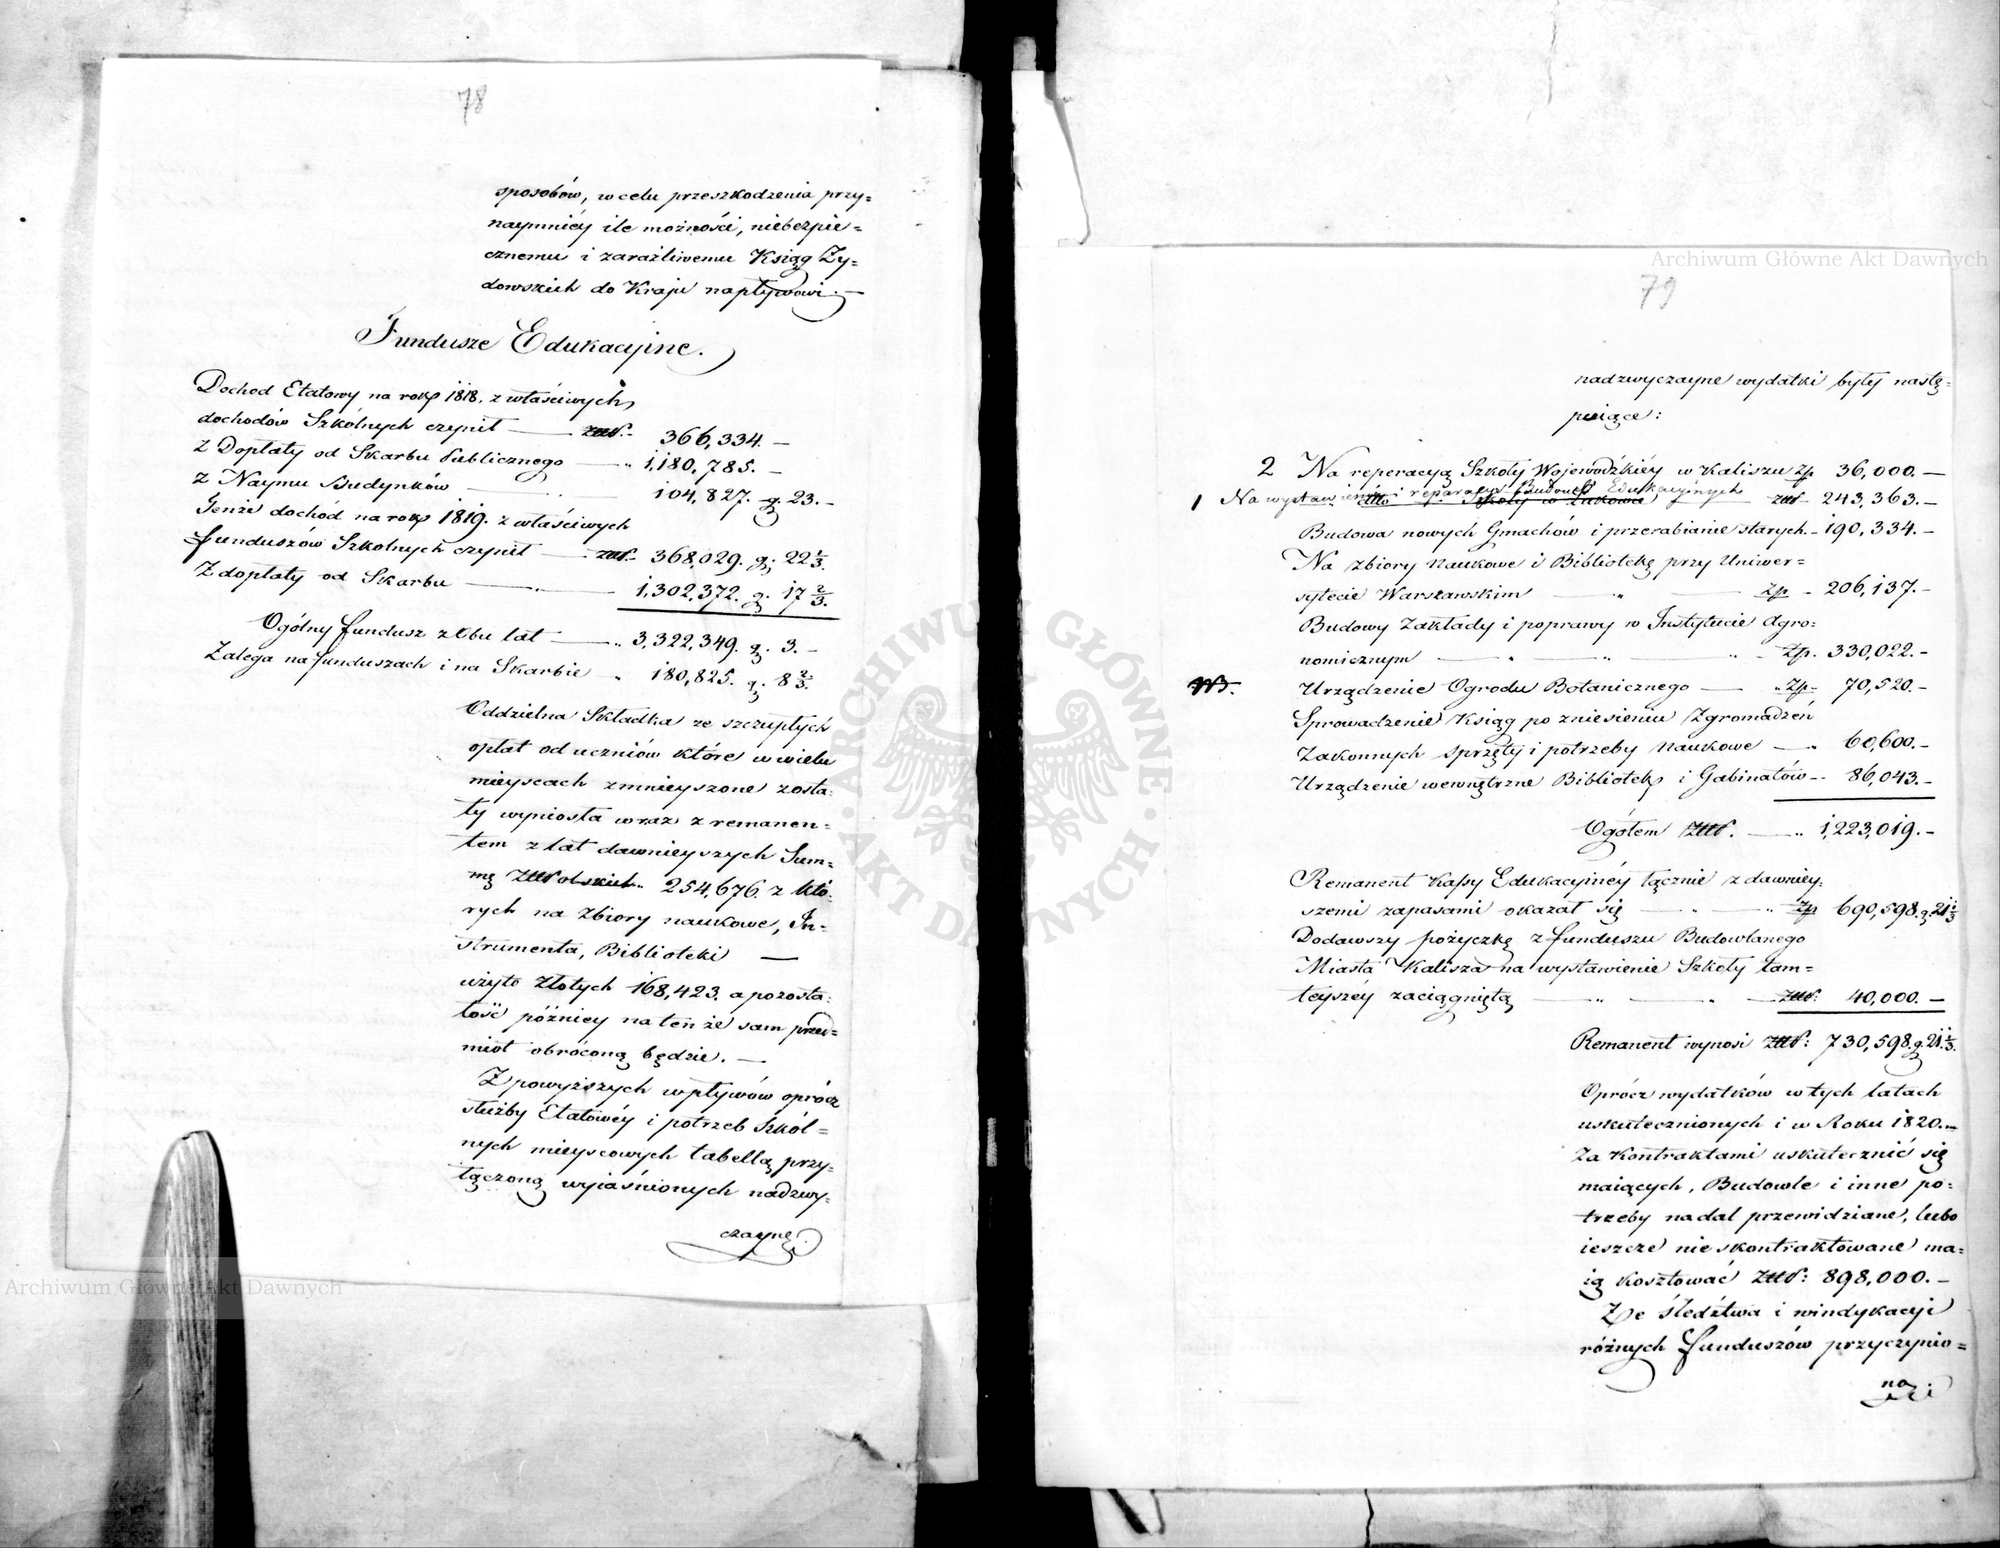 78
sposobów, w celu przeszkodzenia przy=
naymniéy ile możności, niebezpie=
cznemu i zaraźliwemu Ksiąg Ży=
dowskich do Kraju napływowi. —
Fundusze Edukacyine.
Dochod Etatowy na rok 1818. z właściwych
dochodów Szkólnych czynił — złł. 366,334. —
z Dopłaty od Skarbu Publicznego — „ 1,180,785. —
z Naymu Budynków — „ — 104,827. g. 23. —
Tenże dochód na rok 1819. z właściwych
funduszów Szkolnych czynił — złł. 368,029. g. 22 1/3.
Z dopłaty od Skarbu — „ — 1,302,372. g. 17 2/3.
Ogólny fundusz z obu lat — „ 3,322,349. g. 3. —
Zalega na funduszach i na Skarbie — „ 180,825. g. 8 2/3.
Oddzielna Składka ze szczupłych
opłat od uczniów które w wielu
mieyscach zmnieyszone zosta=
ły wyniosła wraz z remanen=
tem z lat dawnieyszych Sum=
mę 254,676. z któ=
rych na zbiory naukowe, In=
strumenta, Biblioteki —
użyto złotych 168,423. a pozosta=
łość późniey na ten że sam przed=
miot obróconą będzie. —
Z powyższych wpływów oprócz
służby Etatowéy i potrzeb Szkól=
nych mieyscowych tabellą przy=
łączoną wyiaśnionych nadzwy=
czayne
79
nadzwyczayne wydatki były nastę=
puiące:
2 Na reperacyą Szkoły Wojewodźkiéy w Kaliszu zp. 36,000. —
1 Na wystawienie i reparacye Budowli Edukacyinych — złł 243,363. —
Budowa nowych Gmachów i przerabianie starych. — 190,334. —
Na zbiory naukowe i Bibliotekę przy Uniwer=
sytecie Warszawskim — „ — zp. 206,137. —
Budowy Zakłady i poprawy w Instytucie Agro=
nomicznym — „ — „ — zp. 330,022. —
NB. Urządzenie Ogrodu Botanicznego — „ zp. 70,520. —
Sprowadzenie Ksiąg po zniesieniu Zgromadzeń
Zakonnych sprzęty i potrzeby naukowe — „ 60,600. —
Urządzenie wewnętrzne Bibliotek i Gabinetów — 86,043. —
Ogółem złł. — „ 1,223,019. —
Remanent Kassy Edukacyinéy łącznie z dawniey=
szemi zapasami okazał się — „ — „ zp 690,598. g. 21 1/3
Dodawszy pożyczkę z funduszu Budowlanego
Miasta Kalisza na wystawienie Szkoły tam=
teyszéy zaciągniętą — „ — „ — złł. 40,000. —
Remanent wynosi złł: 730,598. g. 21 1/3.
Oprócz wydatków w tych latach
uskutecznionych i w Roku 1820. —
za kontraktami uskutecznić się
maiących, Budowle i inne po=
trzeby nadal przewidziane, lubo
ieszcze nieskontraktowane ma=
ią kosztować złł: 898,000. —
Ze śledztwa i windykacyi
różnych funduszów przyczynio=
na
Archiwum Główne Akt Dawnych
Archiwum Główne Akt Dawnych
ARCHIWUM GŁÓWNE · AKT DAWNYCH ·